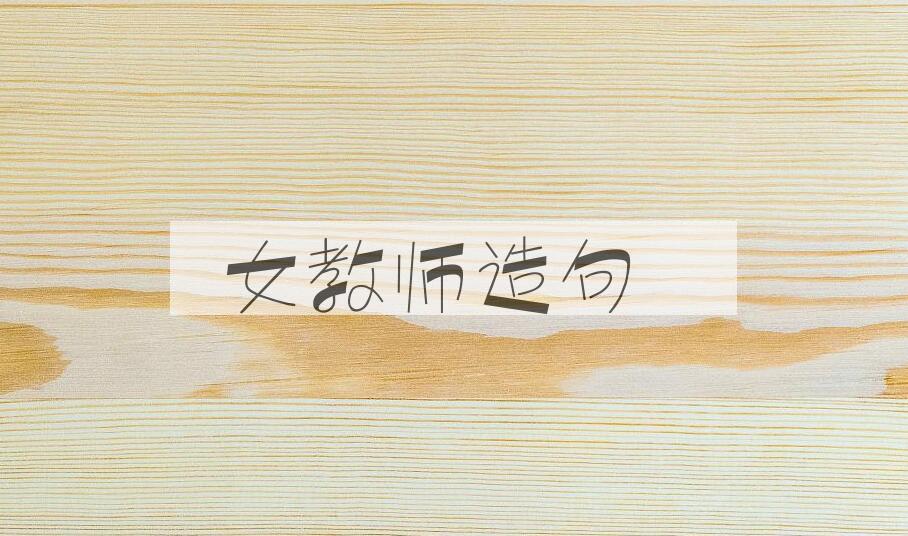 女教师造句